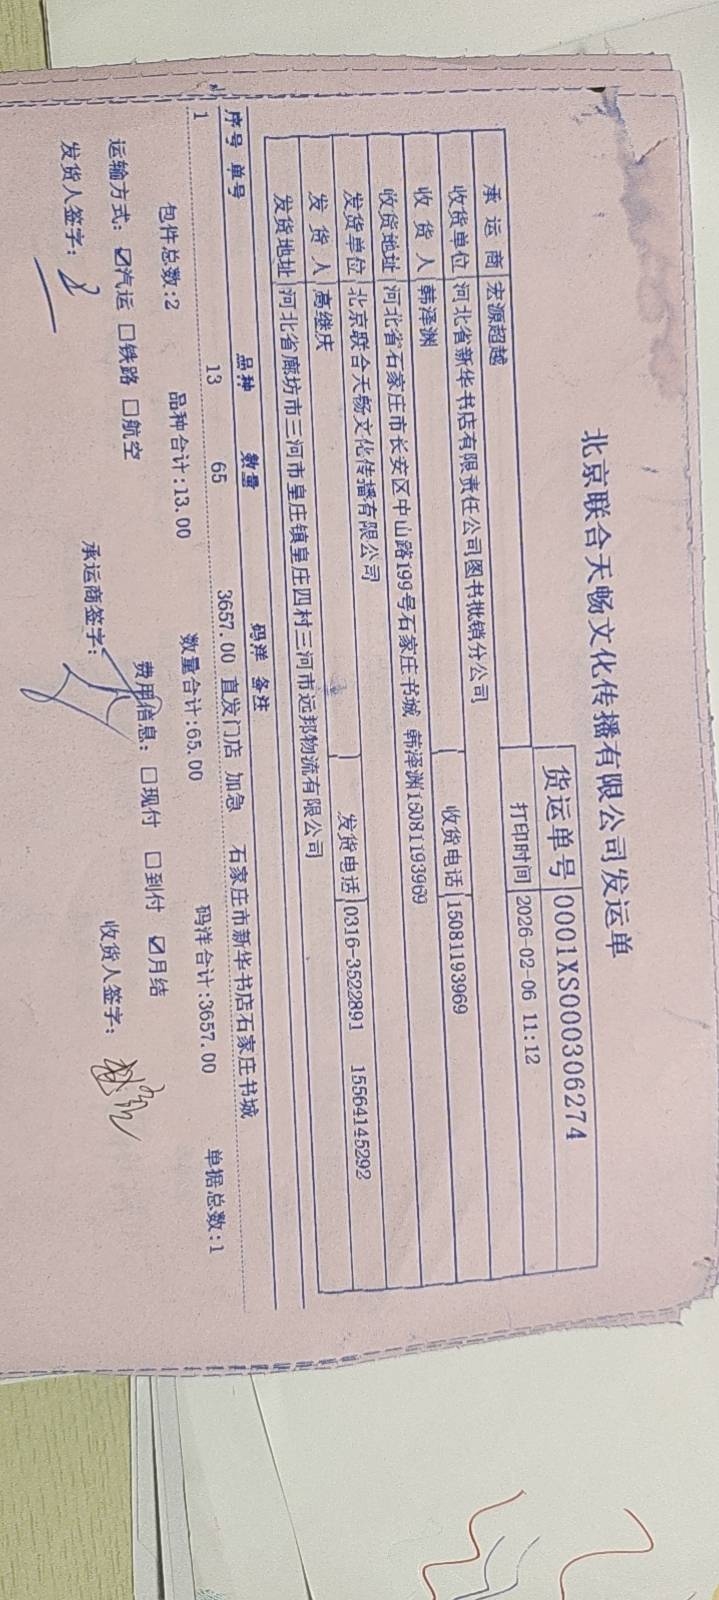 北京联合天畅文化传播有限公司发运单
货运单号 0001XS000306274
打印时间 2026-02-06 11:12
承运商 宏源超越
收货单位 河北省新华书店有限责任公司图书批销分公司 收货电话 15081193969
收货人 韩泽渊
收货地址 河北省石家庄市长安区中山路199号石家庄书城 韩泽渊15081193969
发货单位 北京联合天畅文化传播有限公司 发货电话 0316-3522891 15564145292
发货人 高继庆
发货地址 河北省廊坊市三河市皇庄镇皇庄四村三河市远邦物流有限公司
序号 单号 品种 数量 码洋 备注
1 13 65 3657.00 直发门店 加急 石家庄市新华书店石家庄书城
包件总数:2 品种合计:13.00 数量合计:65.00 码洋合计:3657.00 单据总数:1
运输方式: ☑汽运 ☐铁路 ☐航空 费用信息: ☐现付 ☐到付 ☑月结
发货人签字: 承运商签字: 收货人签字: